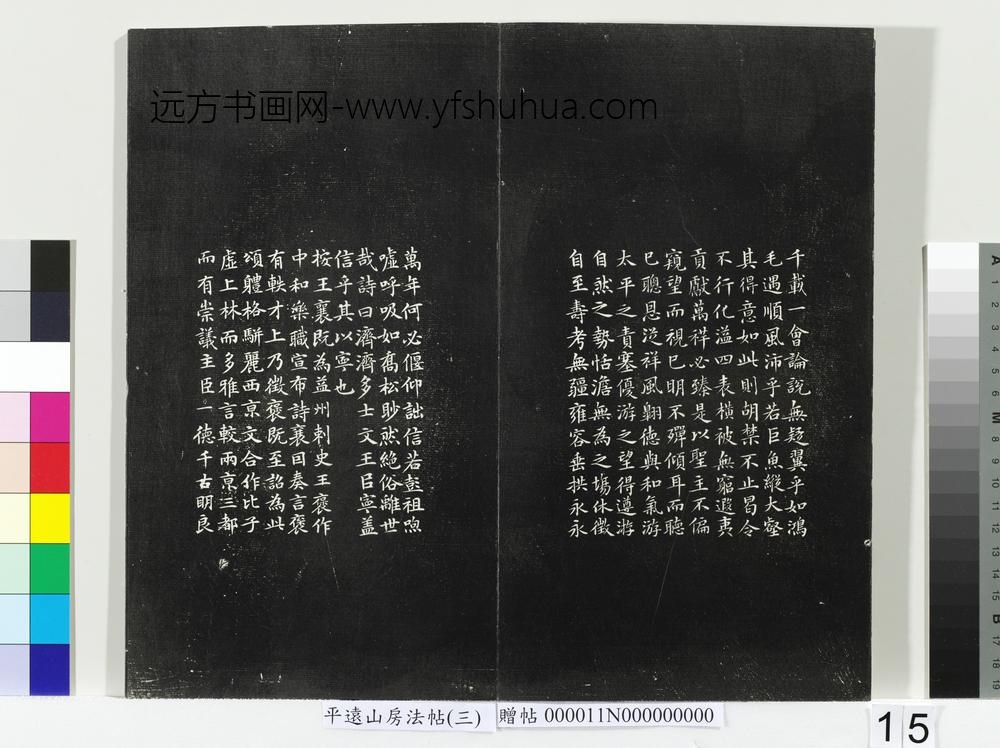 远方书画网-www.yfshuhua.com
千載一會論說無疑翼乎如鴻
毛遇順風沛乎若巨魚縱大壑
其得意如此則胡禁不止曷令
不行化溢四表橫被無窮遐夷
貢獻萬祥必臻是以聖主不偏
窺望而視已明不殫傾耳而聽
已聰恩從祥風翺德與和氣游
太平之責塞優游之望得遵游
自然之勢恬澹無為之場休徵
自至壽考無疆雍容垂拱永永
萬年何必偃仰詘信若彭祖喣
噓呼吸如喬松眇然絶俗離世
哉詩曰濟濟多士文王㠯寧蓋
信乎其以寧也
按王襄既為益州刺史王褒作
中和樂職宣布詩襄因奏言褒
有軼才上乃徵褒既至詔為此
頌體格駢麗西京文合作比子
虛上林而多雅言較兩京三都
而有崇議主臣一德千古明良
平遠山房法帖(三)
贈帖 000011N000000000
15
A 1 2 3 4 5 6 M 8 9 10 11 12 13 14 15 B 17 18 19